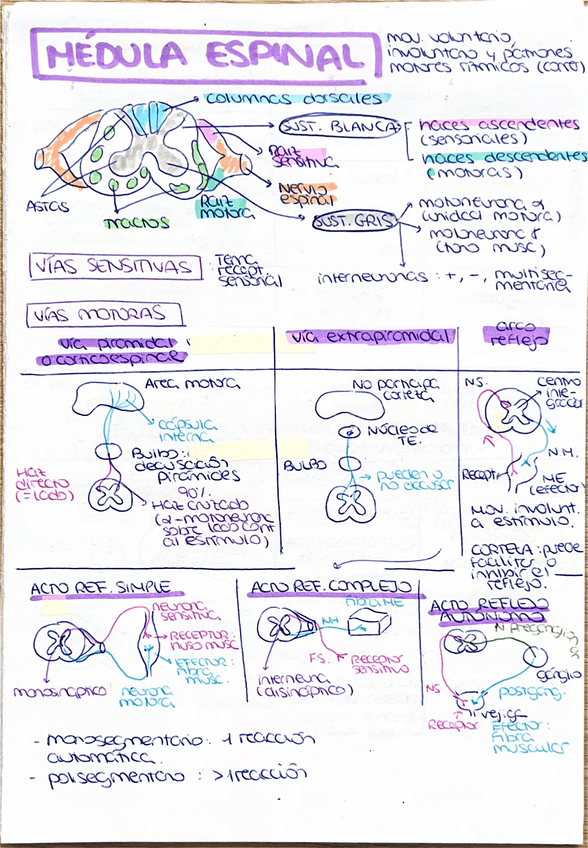 MÉDULA ESPINAL
mov. voluntario,
involuntario y patrones
motores rítmicos (correr)
columnas dorsales
SUST. BLANCA
haces ascendentes
(sensoriales)
haces descendentes
(motoras)
Raiz
sensitiva
Nervio
espinal
Raiz
motora
Astas
tractos
SUST. GRIS
motoneurona α
(unidad motora)
motoneurona γ
(tono musc)
interneuronas : +, -, multiseg-
mentaria
VÍAS SENSITIVAS
: Tema
recept.
sensorial
VÍAS MOTORAS
vía piramidal
o corticoespinal
Area motora
cápsula
interna
Bulbo::
decusación
pirámides
90%.
Haz cruzado
(α-motoneurona
sobre lado cont
al estímulo)
Haz
directo
(=lado)
vía extrapiramidal
No participa
corteza
Núcleo de
TE.
BULBO
pueden o
no decusar
arco
reflejo
NS.
centro
inte-
grador
N.M.
Recept.
ME
(efector)
MOV. involunt.
a estímulo.
CORTEZA: puede
facilitar o
inhibir el
reflejo.
ACTO REF. SIMPLE
neurona
sensitiva
RECEPTOR:
huso musc.
EFECTOR:
fibra
musc.
monosináptico
neurona
motora
ACTO REF. COMPLEJO
fibra ME
NM
FS.
Receptor
sensitivo
interneurona
(disináptico)
ACTO REFLEJO
AUTÓNOMO
N preganglio
gánglio
NS
postgang.
vejiga
Receptor
Efector:
Fibra
muscular
- monosegmentario: 1 reacción
automática.
- polisegmentario : >1 reacción